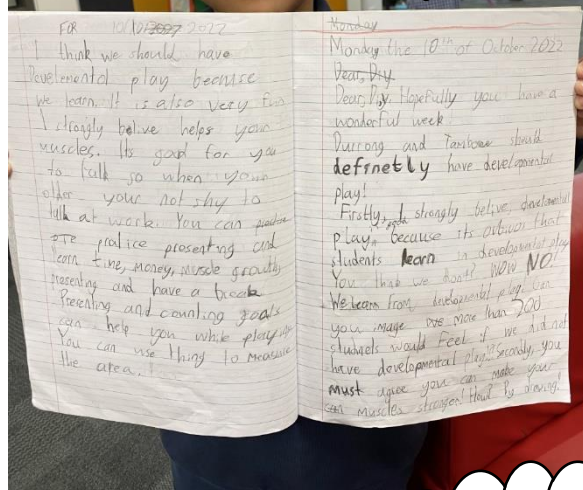 FOR 10/10/2022
I think we should have
Develemental play because
We learn. It is also very fun
I strongly belive helps your
muscles. Its good for you
to talk so when your
older your not shy to
talk at work. You can practice
pratice presenting and
learn time, money, muscle growth,
presenting and have a break
Presenting and counting goals
can help you while playing
You can use thing to measure
the area.
Monday
Monday the 10th of October 2022
Dear,
Dear, Hopefully you have a
wonderful week.
Durrong and Tambour should
definetly have developmental
play!
Firstly, I strongly belive, developmental
play, because its obvous that
students learn in developmental play
You think we don't? WOW NO!!
We learn from developmental play. Can
you image more than 200
students would feel if we did not
have developmental play? Secondly, you
must agree you can make your
muscles stronger! How? By moving!